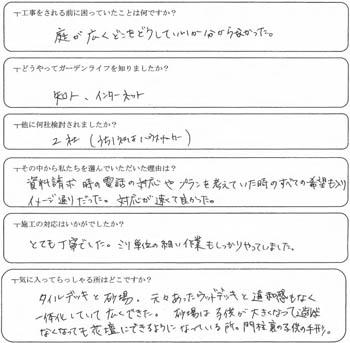 ┬工事をされる前に困っていたことは何ですか？
庭が広くどこをどうしていいか分からなかった。
┬どうやってガーデンライフを知りましたか？
知人、インターネット
┬他に何社検討されましたか？
2社（うち1社はハウスメーカー）
┬その中から私たちを選んでいただいた理由は？
資料請求時の電話の対応やプランを考えていた時のすべての希望も入り
イメージ通りだった。対応が速くて良かった。
┬施工の対応はいかがでしたか？
とても丁寧でした。ミリ単位の細い作業もしっかりやってしました。
┬気に入ってらっしゃる所はどこですか？
タイルデッキと砂場。元々あったウッドデッキと違和感もなく
一体化していて広くできた。砂場は子供が大きくなって
なくなっても花壇にできるようになっている所。門柱裏の子供の手形。